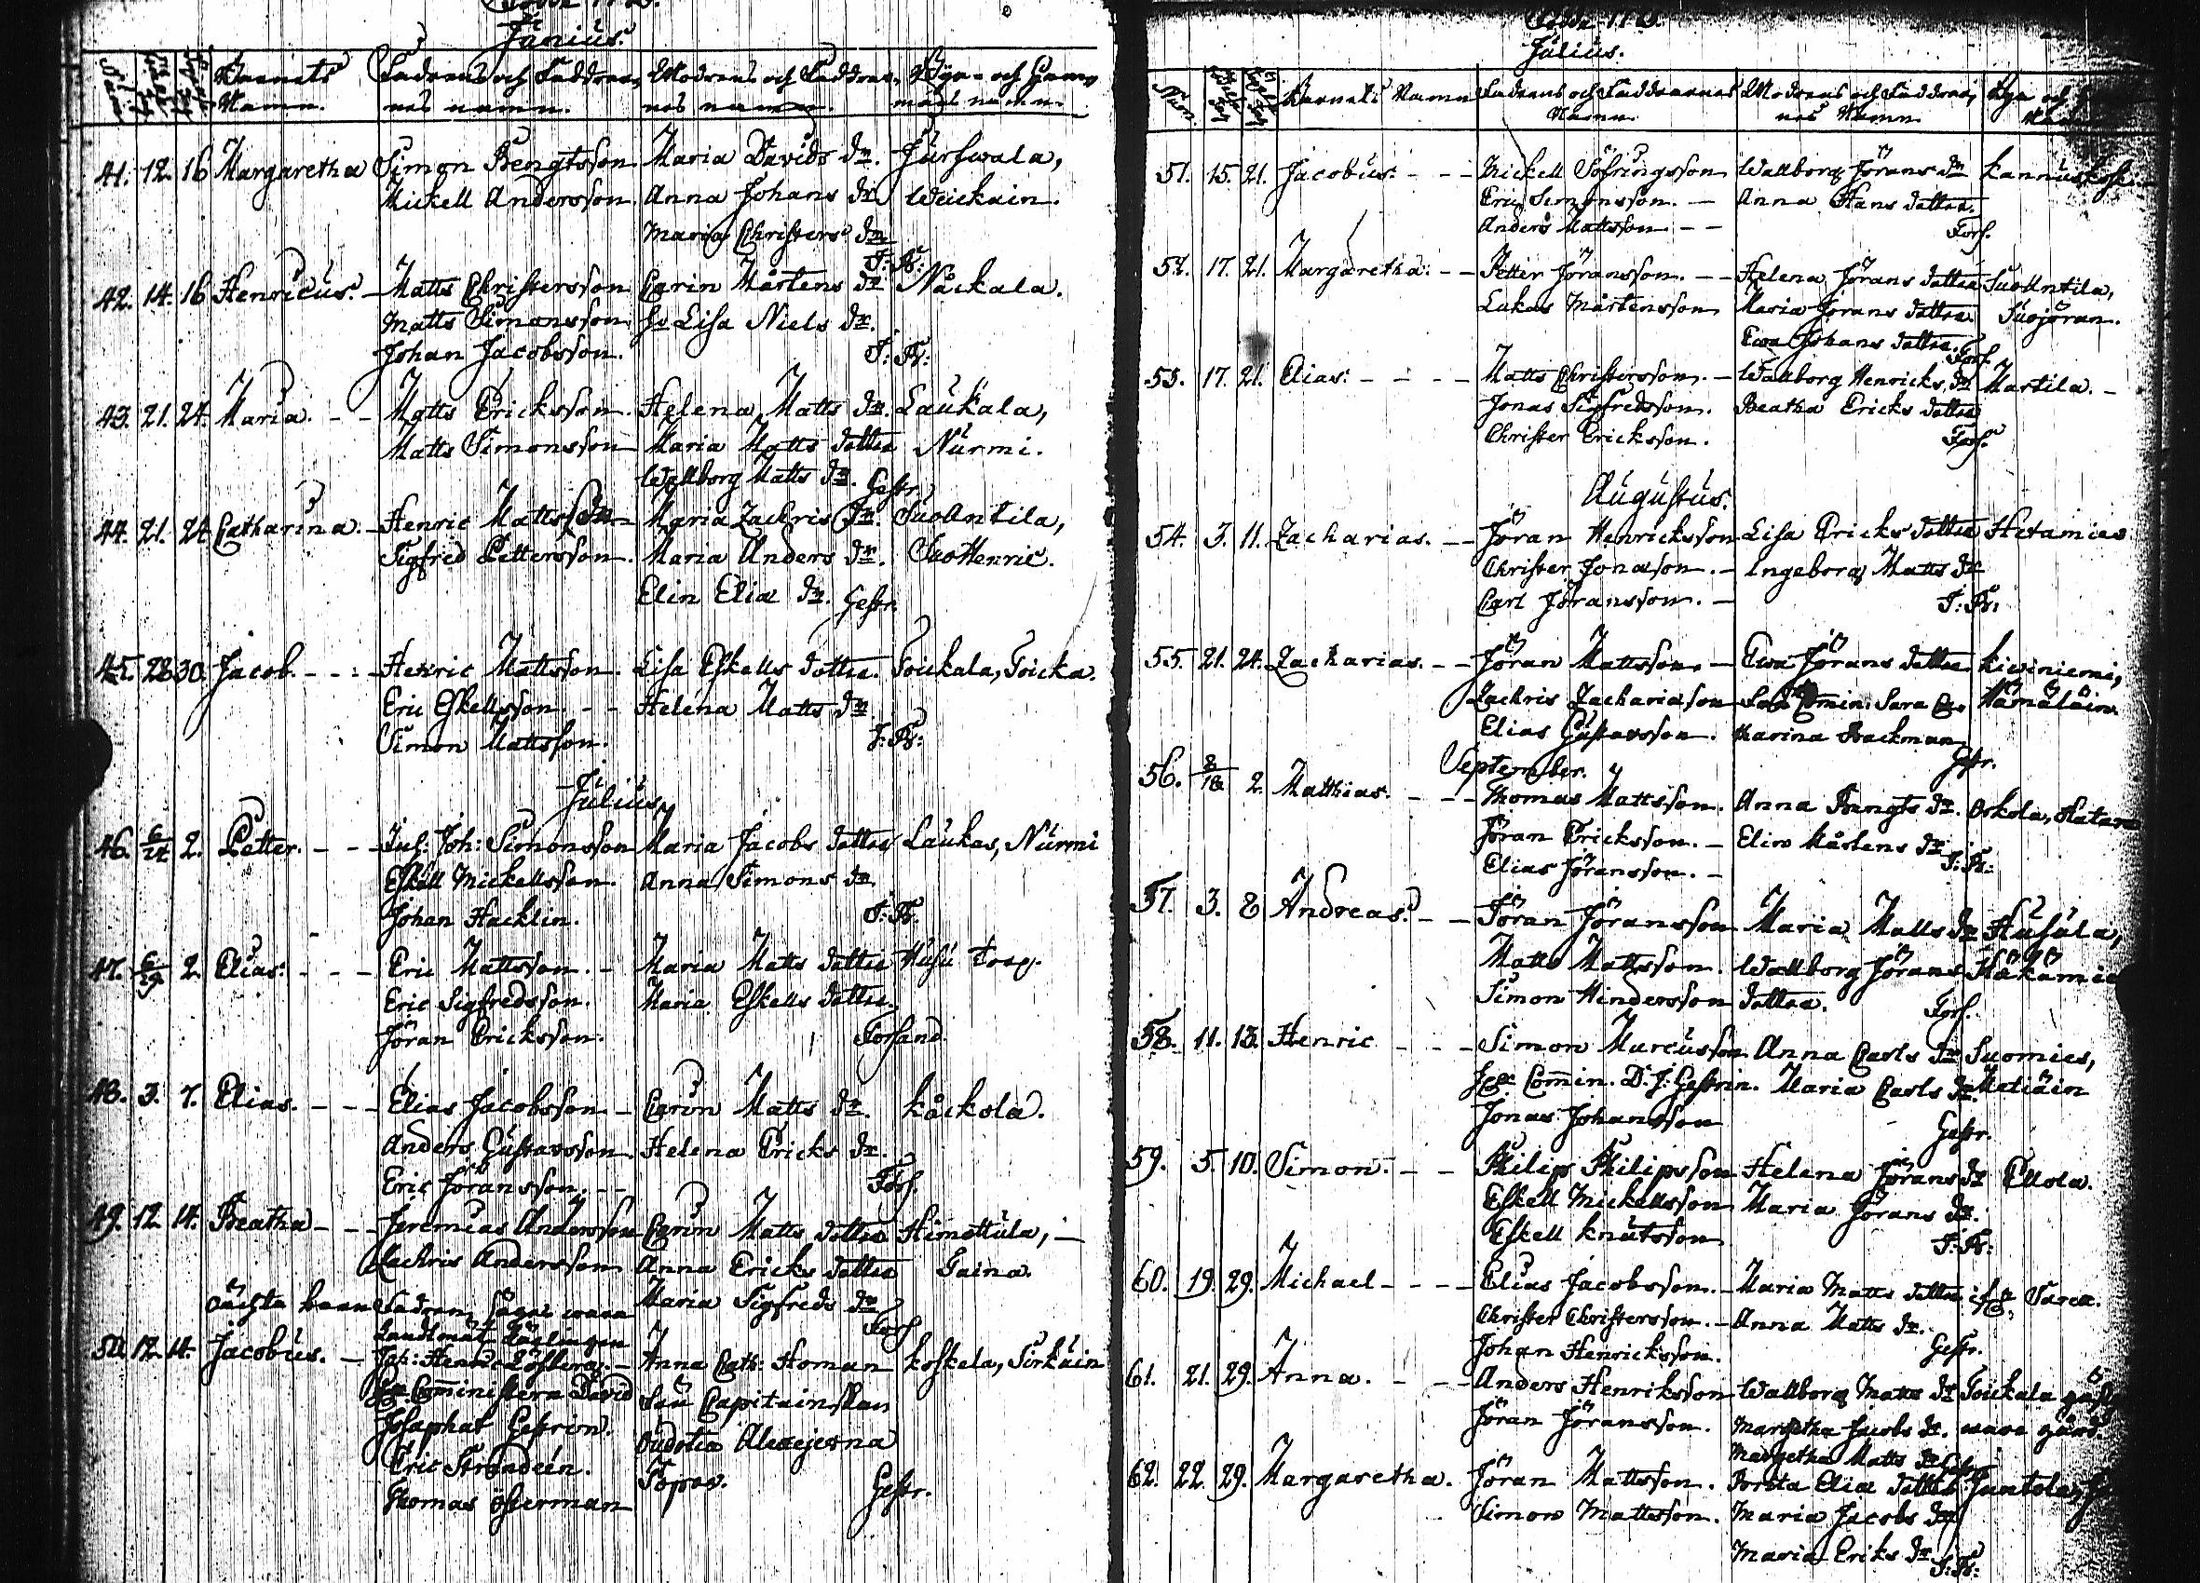 Junius.
Num̄
Barnets Namn.
Fadrens och Faddrar, nes namn.
Modrens och Faddrar, nes namn.
Bya- och Hem, mans namn.
41. 12. 16 Margaretha Simon Bengtsson Maria Davids dr. Jurswala,
Mickell Andersson. Anna Johans dr. Weickain.
Maria Christers dr.
J: Fr:
42. 14. 16 Henricus. Matts Christersson Carin Mårtens dr. Näckala.
Matts Simonsson Lisa Niels dr.
Johan Jacobsson. J: Fr:
43. 21. 24. Maria. Matts Ericksson. Helena Matts dr. Laukala,
Matts Simonsson Maria Matts dotter Nurmi.
Wallborg Matts dr. Gestr.
44. 21. 24 Catharina. Henric Mattsson Maria Zachris dr. SuoAntila,
Sigfred Pettersson. Maria Anders dr. SuoHenric.
Elin Elia dr. Gestr.
45. 28 30. Jacob. Henric Mattsson. Lisa Eskells dotter. Toickala, Toicka.
Eric Eskellsson. Helena Matts dr.
Simon Mattsson. J: Fr:
Julius
46. 6/24 2. Petter. Joh: Simonsson Maria Jacobs dotter Laukas, Nurmi
Eskell Mickellsson. Anna Simons dr.
Johan Hacklin. J: Fr.
47. 6/29 2 Elias: Eric Mattsson. Maria Matts dotter Husu Torp.
Eric Sigfredsson. Maria Eskells dotter.
Jöran Ericksson. Forsand.
48. 3. 7. Elias. Elias Jacobsson Carin Matts dr. Kåckola.
Anders Gustavsson. Helena Ericks dr.
Eric Jöransson. Fors.
49. 12 14. Beatha Jeremias Andersson Carin Matts dotter Himottula,
Zachris Andersson Anna Ericks dotter Gaina.
oächta barn Fadren säges wara Maria Sigfreds dr.
Fors.
50. 12. 14. Jacobus. Henric Löfberg. Anna Cath: Homan Koskela, Sirkäin
Cōministern David Capitainskan
Josaphat Gestrin. Oudotia Alexejevna
Eric Strandèn. Popov. Gestr.
Thomas Österman
Julius.
Num̄
Barnets Namn
Fadrens och Faddrarnes Namn.
Modrens och Faddrar, nes Namn.
Bya och
51. 15. 21. Jacobus: Mickell Söfringsson Wallborg Jörans dr. Kannuskosk
Eric Simonsson. Anna Hans dotter.
Anders Mattsson Fors.
52. 17. 21. Margaretha: Petter Jöransson. Helena Jörans dotter SuoAntila,
Lukas Mårtensson Maria Jörans dotter. Suojöran.
Ewa Johans dotter. Fors.
53. 17. 21. Elias: Matts Christersson. Wallborg Henricks dr Martila.
Jonas Sigfredsson. Beatha Ericks dotter
Christer Ericksson. Fors.
Augustus.
54. 3. 11. Zacharias. Jöran Henricksson Lisa Ericks dotter Heramies
Christer Jonasson. Ingeborg Matts dr
Carl Jöransson. J: Fr:
55. 21. 24. Zacharias. Jöran Mattsson. Ewa Jörans dotter Kiwiniemi,
Zachris Zachariason Cōmin: Sara Ca Hämäläin.
Elias Gustavsson. tharina Backman
Gestr.
September.
56. 8/18 2. Matthias. Thomas Mattsson. Anna Bengts dr. Orkola,
Jöran Ericksson. Elin Mårtens dr.
Elias Jöransson. J: Fr:
57. 3. 8 Andreas. Jöran Jöransson Maria Matts dr. Husula,
Matts Mattsson. Wallborg Jörans
Simon Hindersson dotter. Fors.
58. 11. 13. Henric Simon Marcusson Anna Carls dr Suomies,
Cōmin. D. J. Gestrin. Maria Carls dr. Matiäin
Jonas Johansson Gestr.
59. 5. 10. Simon. Philip Philipsson Helena Jörans dr Ellola.
Eskell Mickellsson Maria Jörans dr.
Eskell Knutsson J: Fr:
60. 19. 29. Michael Elias Jacobsson. Maria Matts dotter
Christer Christersson. Anna Matts dr.
Johan Henricksson. Gestr.
61. 21. 29. Anna. Anders Henriksson Wallborg Matts dr Toickala
Jöran Jöransson. Margetha Jacobs dr.
Margetha Matts dr
62. 22. 29. Margaretha. Jöran Mattsson. Elia dotter Juntola,
Simon Mattsson. Maria Jacobs dr
Maria Eriks dr. J: Fr: